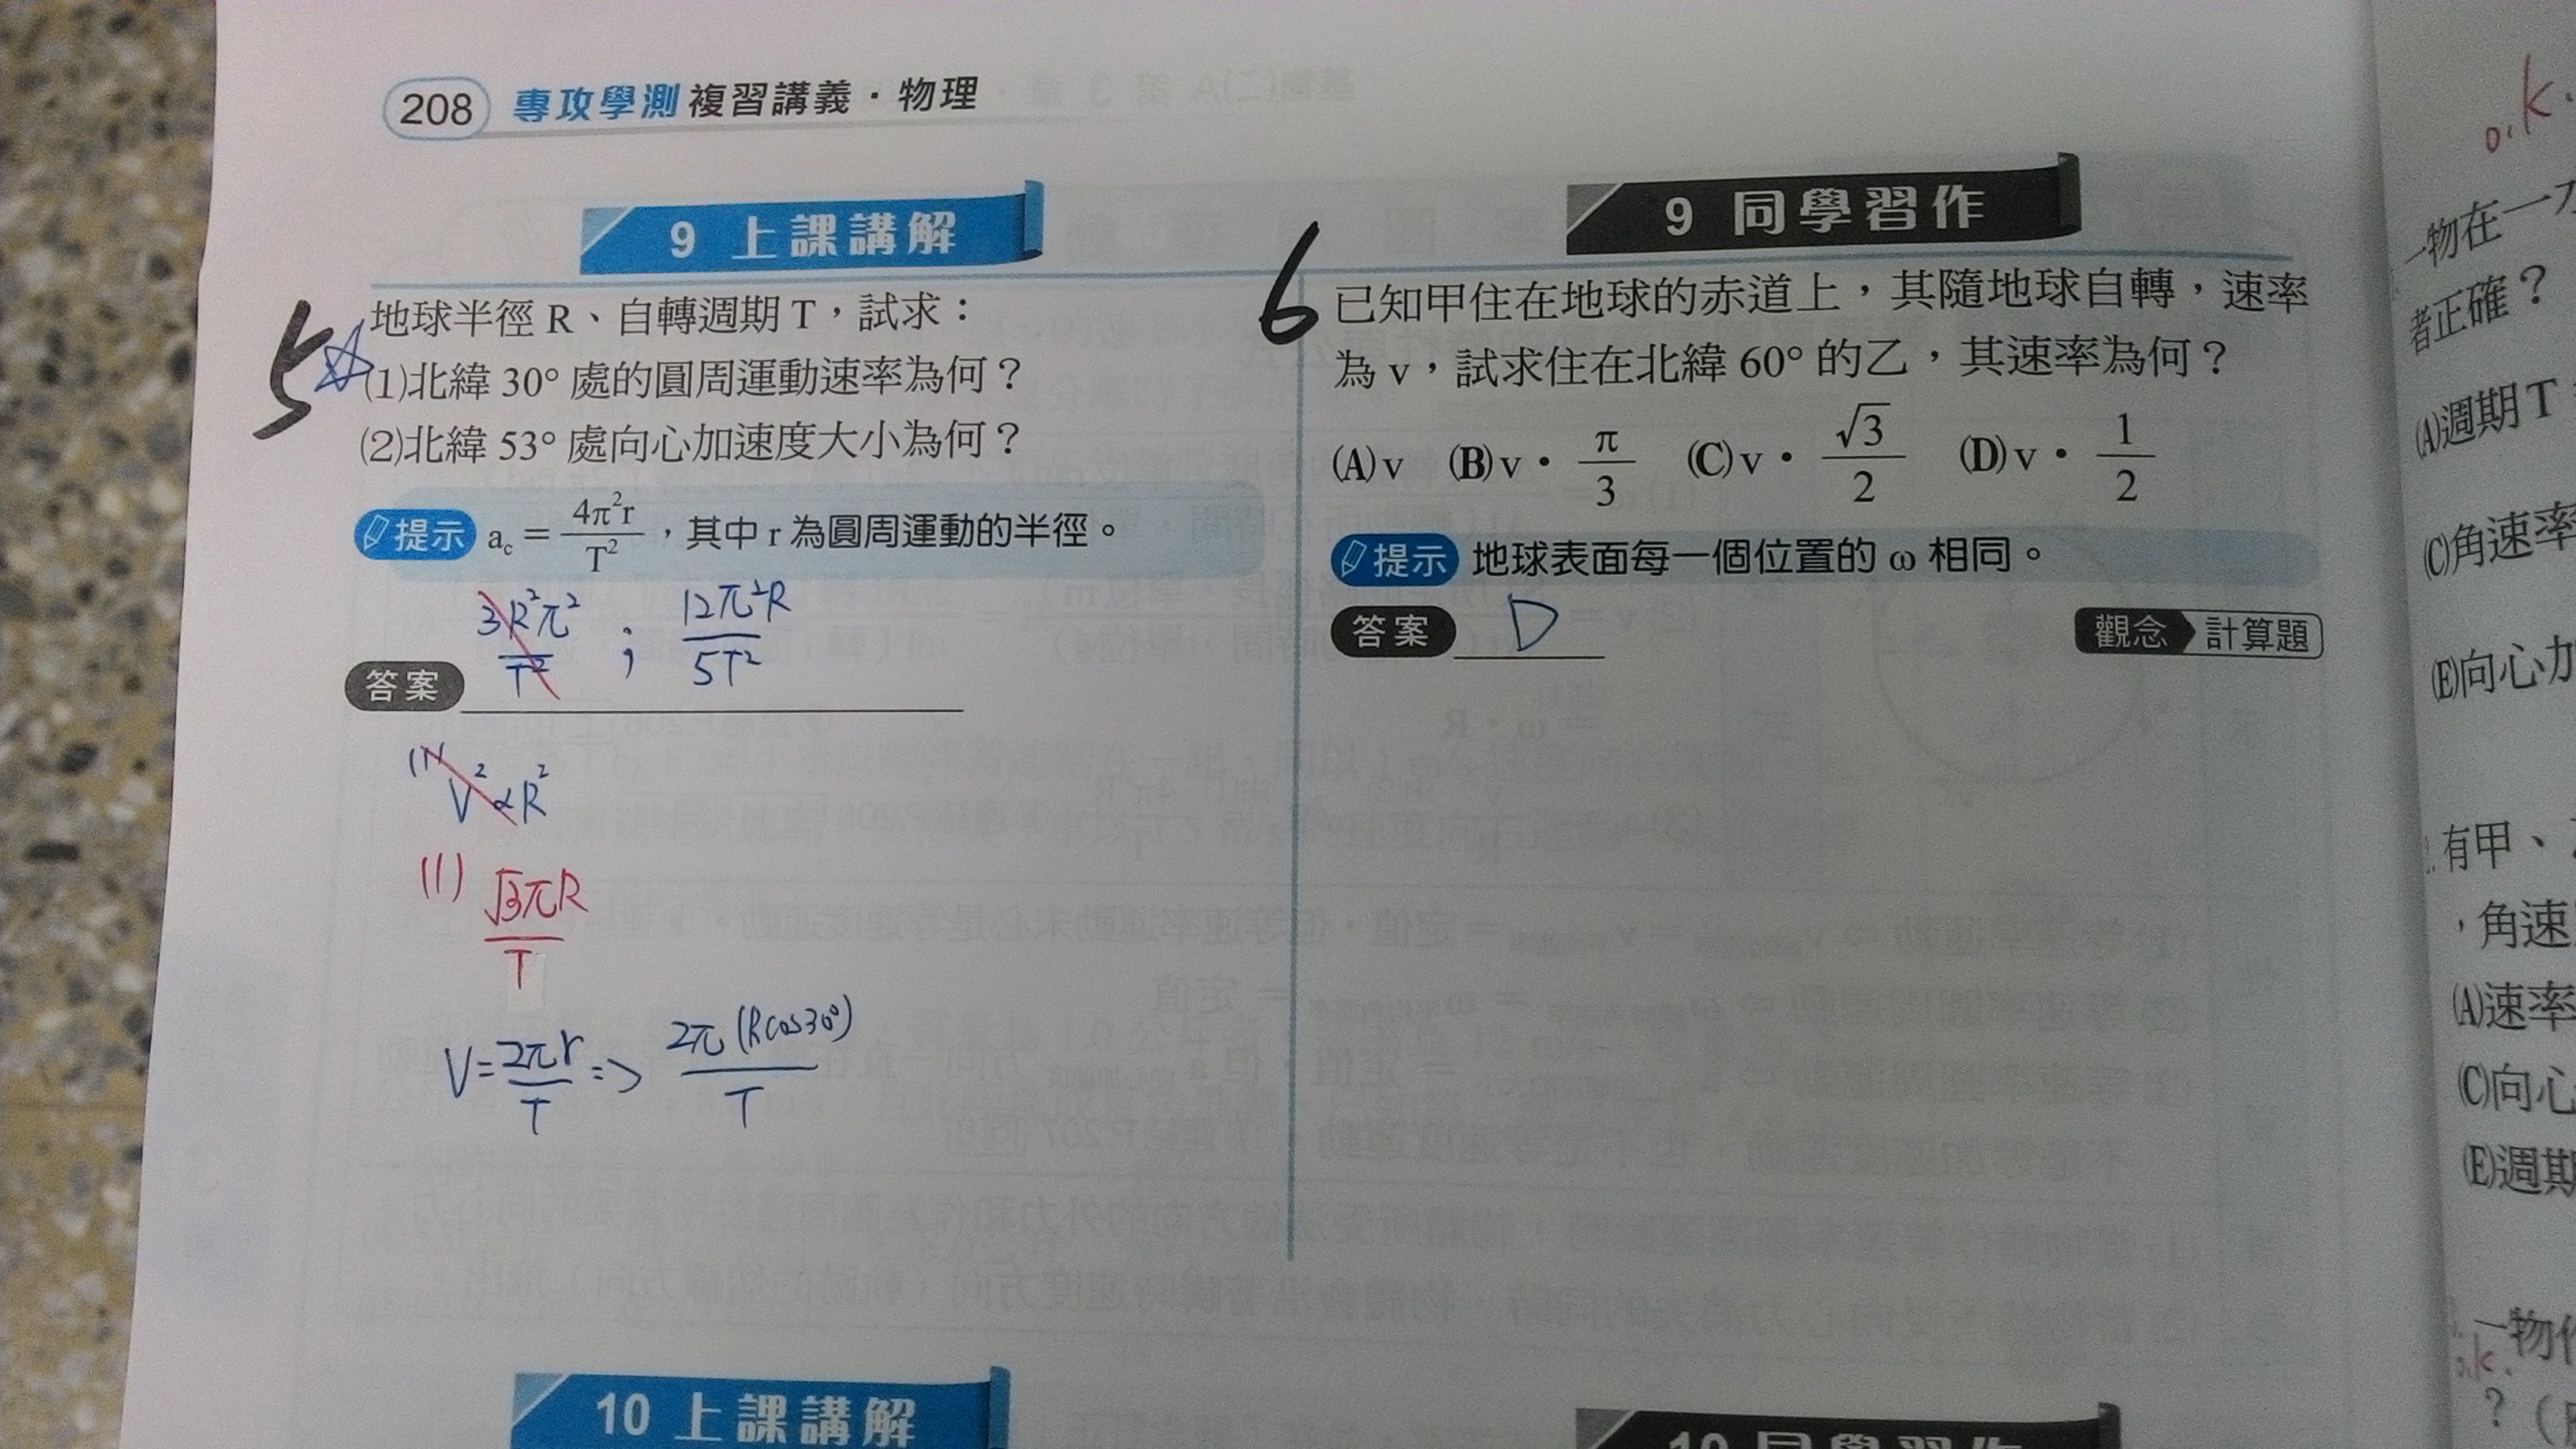 208 專攻學測 複習講義・物理
9 上課講解
5
地球半徑 R、自轉週期 T，試求：
(1)北緯 30° 處的圓周運動速率為何？
(2)北緯 53° 處向心加速度大小為何？
提示 a_c = 4π²r / T²，其中 r 為圓周運動的半徑。
答案 3R²π² / T² ; 12π²R / 5T²
(1) V² ∝ R²
(1) √3πR / T
V = 2πr / T => 2π(Rcos30°) / T
10 上課講解
9 同學習作
6
已知甲住在地球的赤道上，其隨地球自轉，速率
為 v，試求住在北緯 60° 的乙，其速率為何？
(A) v (B) v・π/3 (C) v・√3/2 (D) v・1/2
提示 地球表面每一個位置的 ω 相同。
答案 D
觀念 計算題
10 同學習作
o.k.
一物在一
者正確？
(A)週期 T
(C)角速率
(E)向心加
有甲、
，角速
(A)速率
(C)向心
(E)週期
一物作
o.k.
？（